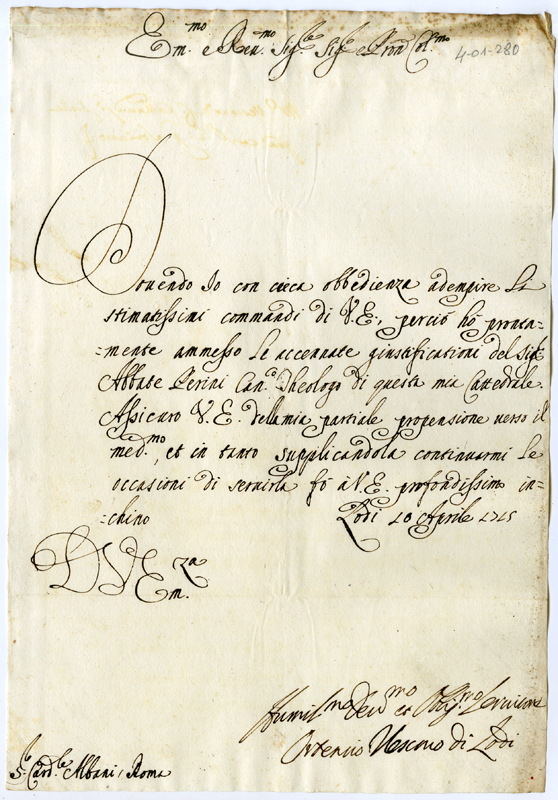 Em.mo e Reu.mo Sig.re Sig.re e Pron Col.mo
4-01-280
Douendo Io con cieca obbedienza adempire Li
stimatissimi commandi di V.E., perciò hò pronta-
=mente ammesso le accennate giustificationi del Sig.r
Abbate Perini Can.co Theologo di questa mia Cattedrale.
Assicuro V.E. della mia partiale propensione verso il
med.mo, et in tanto supplicandola continuarmi le
occasioni di seruirla fò à V.E. profondissimo in-
=chino Lodi 10 Aprile 1715
D V Em.za
Humil.mo Deu.mo et Oblig.mo Seruitore
Ortensio Vescouo di Lodi
S.r Card.le Albani, Roma